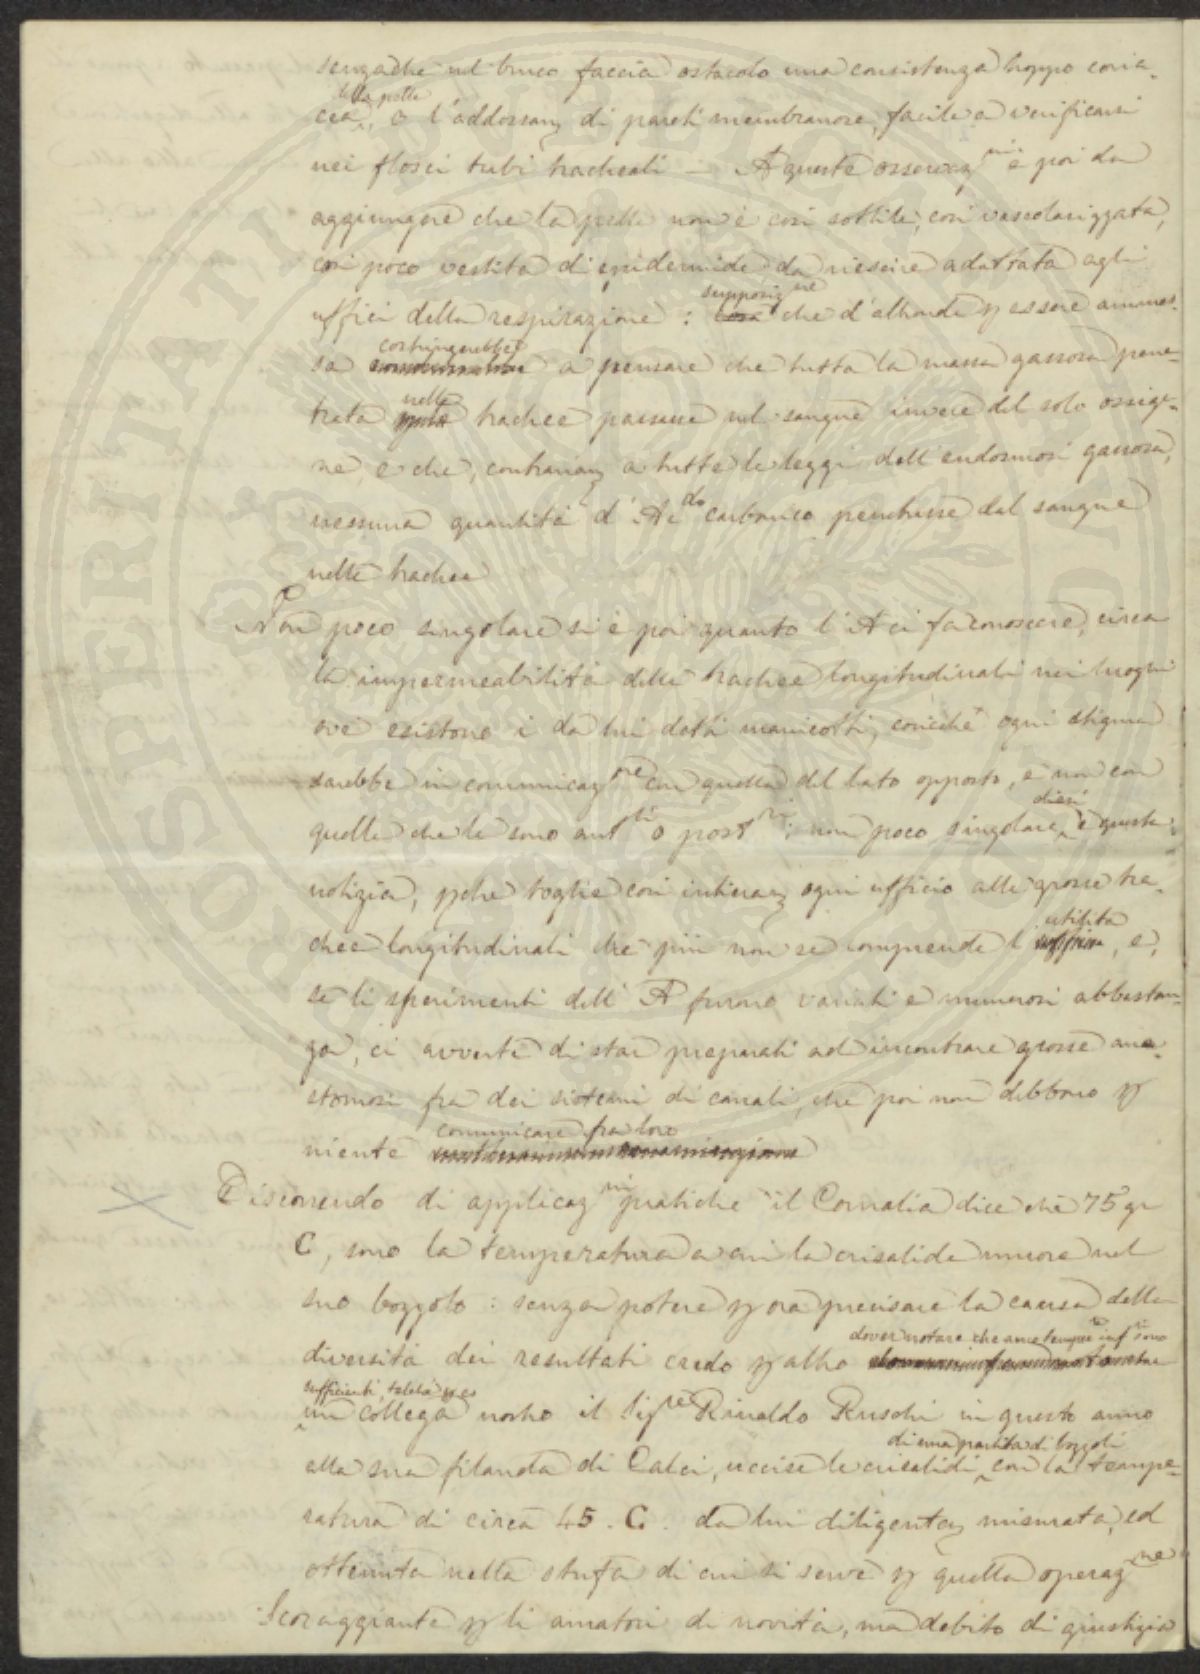 senzache nel bruco faccia ostacolo una consistenza troppo coria-
della pelle
cea, o l'addossam di pareti membranose, facile a verificarsi
nei flosci tubi tracheali — A queste osservaz ni è poi da
aggiungere che la pelle non è così sottile, così vascolarizzata,
così poco vestita di epidermide da riescire adattata agli
supposiz ne
uffici della respirazione: che d'altronde p essere ammes-
costringerebbe
sa a pensare che tutta la massa gassosa pene-
nelle
trata trachee passasse nel sangue invece del solo ossige-
ne, e che, contrariam a tutte le leggi dell'endosmosi gassosa,
nessuna quantità d'Aci do carbonico penetrasse dal sangue
nelle trachee
Non poco singolare si è poi quanto l'A ci fa conoscere, circa
la impermeabilità delle trachee longitudinali nei luoghi
ove esistono i da lui detti manicotti, cosicchè ogni stigma
sarebbe in comunicaz ne con quello del lato opposto, e non con
quelle che le sono ant ri o post ri: non poco singolare è questa
dissi
notizia, pche toglie così intieram ogni ufficio alle grosse tra-
utilità
chee longitudinali che più non se comprende l', e,
se li sperimenti dell'A furono variati e numerosi abbastan-
za, ci avverte di star preparati ad incontrare grosse ana-
stomosi fra dei sistemi di canali, che poi non debbono p
comunicare fra loro
niente
Discorrendo di applicaz ni pratiche il Cornalia dice che 75 gr
C, sono la temperatura a cui la crisalide muore nel
suo bozzolo: senza potere p ora precisare la causa della
dover notare che anco temper inf ri sono
diversità dei resultati credo p altro
sufficienti talchè
un collega nostro il Sig re Rinaldo Ruschi in questo anno
di una partita di bozzoli
alla sua filanda di Calci, uccise le crisalidi con la tempe-
ratura di circa 45. C. da lui diligentem misurata, ed
ottenuta nella stufa di cui si serve p quella operaz ne
Scoraggiante p li amatori di novità, ma debito di giustizia
PROSPERITATI PUBLICAE AUGENDAE